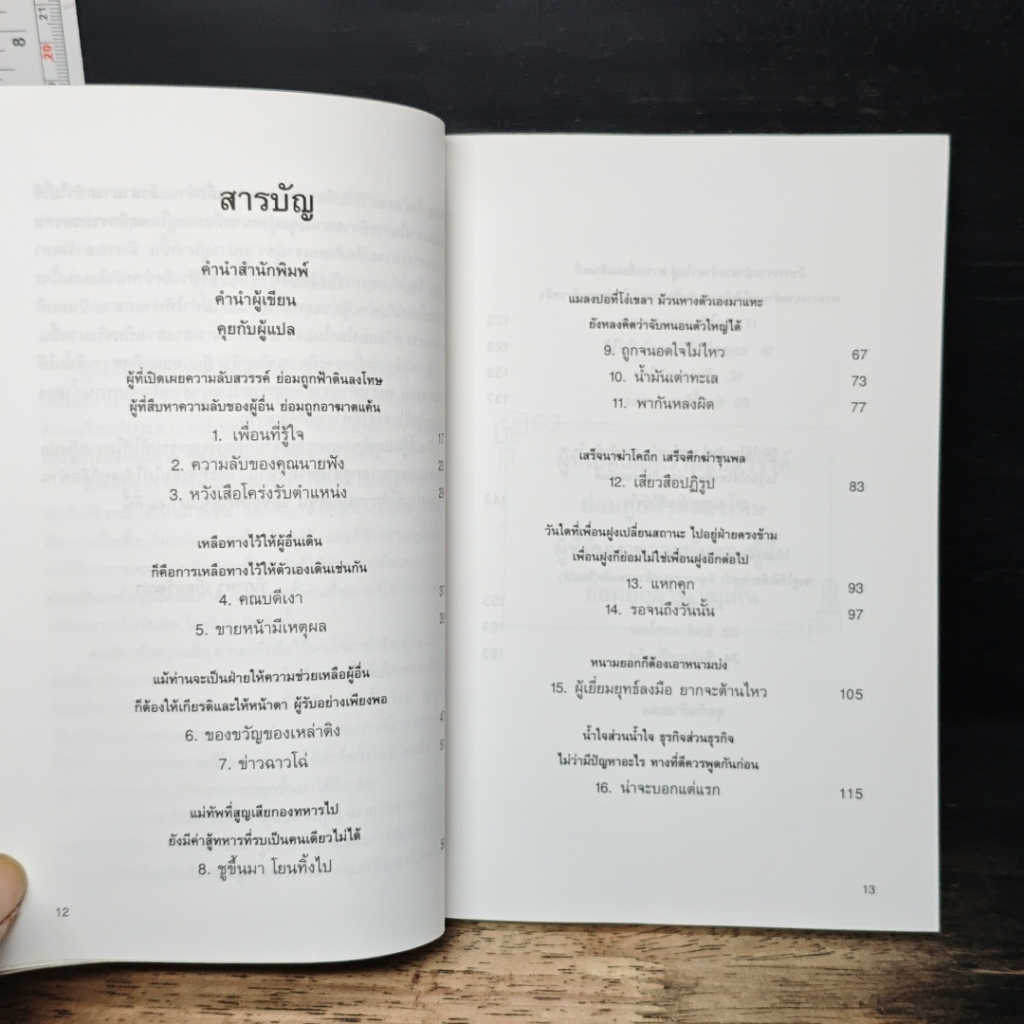 8
21
20
สารบัญ
คำนำสำนักพิมพ์
คำนำผู้เขียน
คุยกับผู้แปล
ผู้ที่เปิดเผยความลับสวรรค์ ย่อมถูกฟ้าดินลงโทษ
ผู้ที่สืบหาความลับของผู้อื่น ย่อมถูกอาฆาตแค้น
1. เพื่อนที่รู้ใจ 17
2. ความลับของคุณนายฟัง
3. หวังเสือโคร่งรับตำแหน่ง
เหลือทางไว้ให้ผู้อื่นเดิน
ก็คือการเหลือทางไว้ให้ตัวเองเดินเช่นกัน
4. คณบดีเงา
5. ขายหน้ามีเหตุผล
แม้ท่านจะเป็นฝ่ายให้ความช่วยเหลือผู้อื่น
ก็ต้องให้เกียรติและให้หน้าตา ผู้รับอย่างเพียงพอ
6. ของขวัญของเหล่าติง
7. ข่าวฉาวโฉ่
แม่ทัพที่สูญเสียกองทหารไป
ยังมีค่าสู้ทหารที่รบเป็นคนเดียวไม่ได้
8. ชูขึ้นมา โยนทิ้งไป
12
แมลงปอที่โง่เขลา ม้วนหางตัวเองมาแทะ
ยังหลงคิดว่าจับหนอนตัวใหญ่ได้
9. ถูกจนอดใจไม่ไหว 67
10. น้ำมันเต่าทะเล 73
11. พากันหลงผิด 77
เสร็จนาฆ่าโคถึก เสร็จศึกฆ่าขุนพล
12. เสี่ยวสือปฏิรูป 83
วันใดที่เพื่อนฝูงเปลี่ยนสถานะ ไปอยู่ฝ่ายตรงข้าม
เพื่อนฝูงก็ย่อมไม่ใช่เพื่อนฝูงอีกต่อไป
13. แหกคุก 93
14. รอจนถึงวันนั้น 97
หนามยอกก็ต้องเอาหนามบ่ง
15. ผู้เยี่ยมยุทธ์ลงมือ ยากจะต้านไหว 105
น้ำใจส่วนน้ำใจ ธุรกิจส่วนธุรกิจ
ไม่ว่ามีปัญหาอะไร ทางที่ดีควรพูดกันก่อน
16. น่าจะบอกแต่แรก 115
13